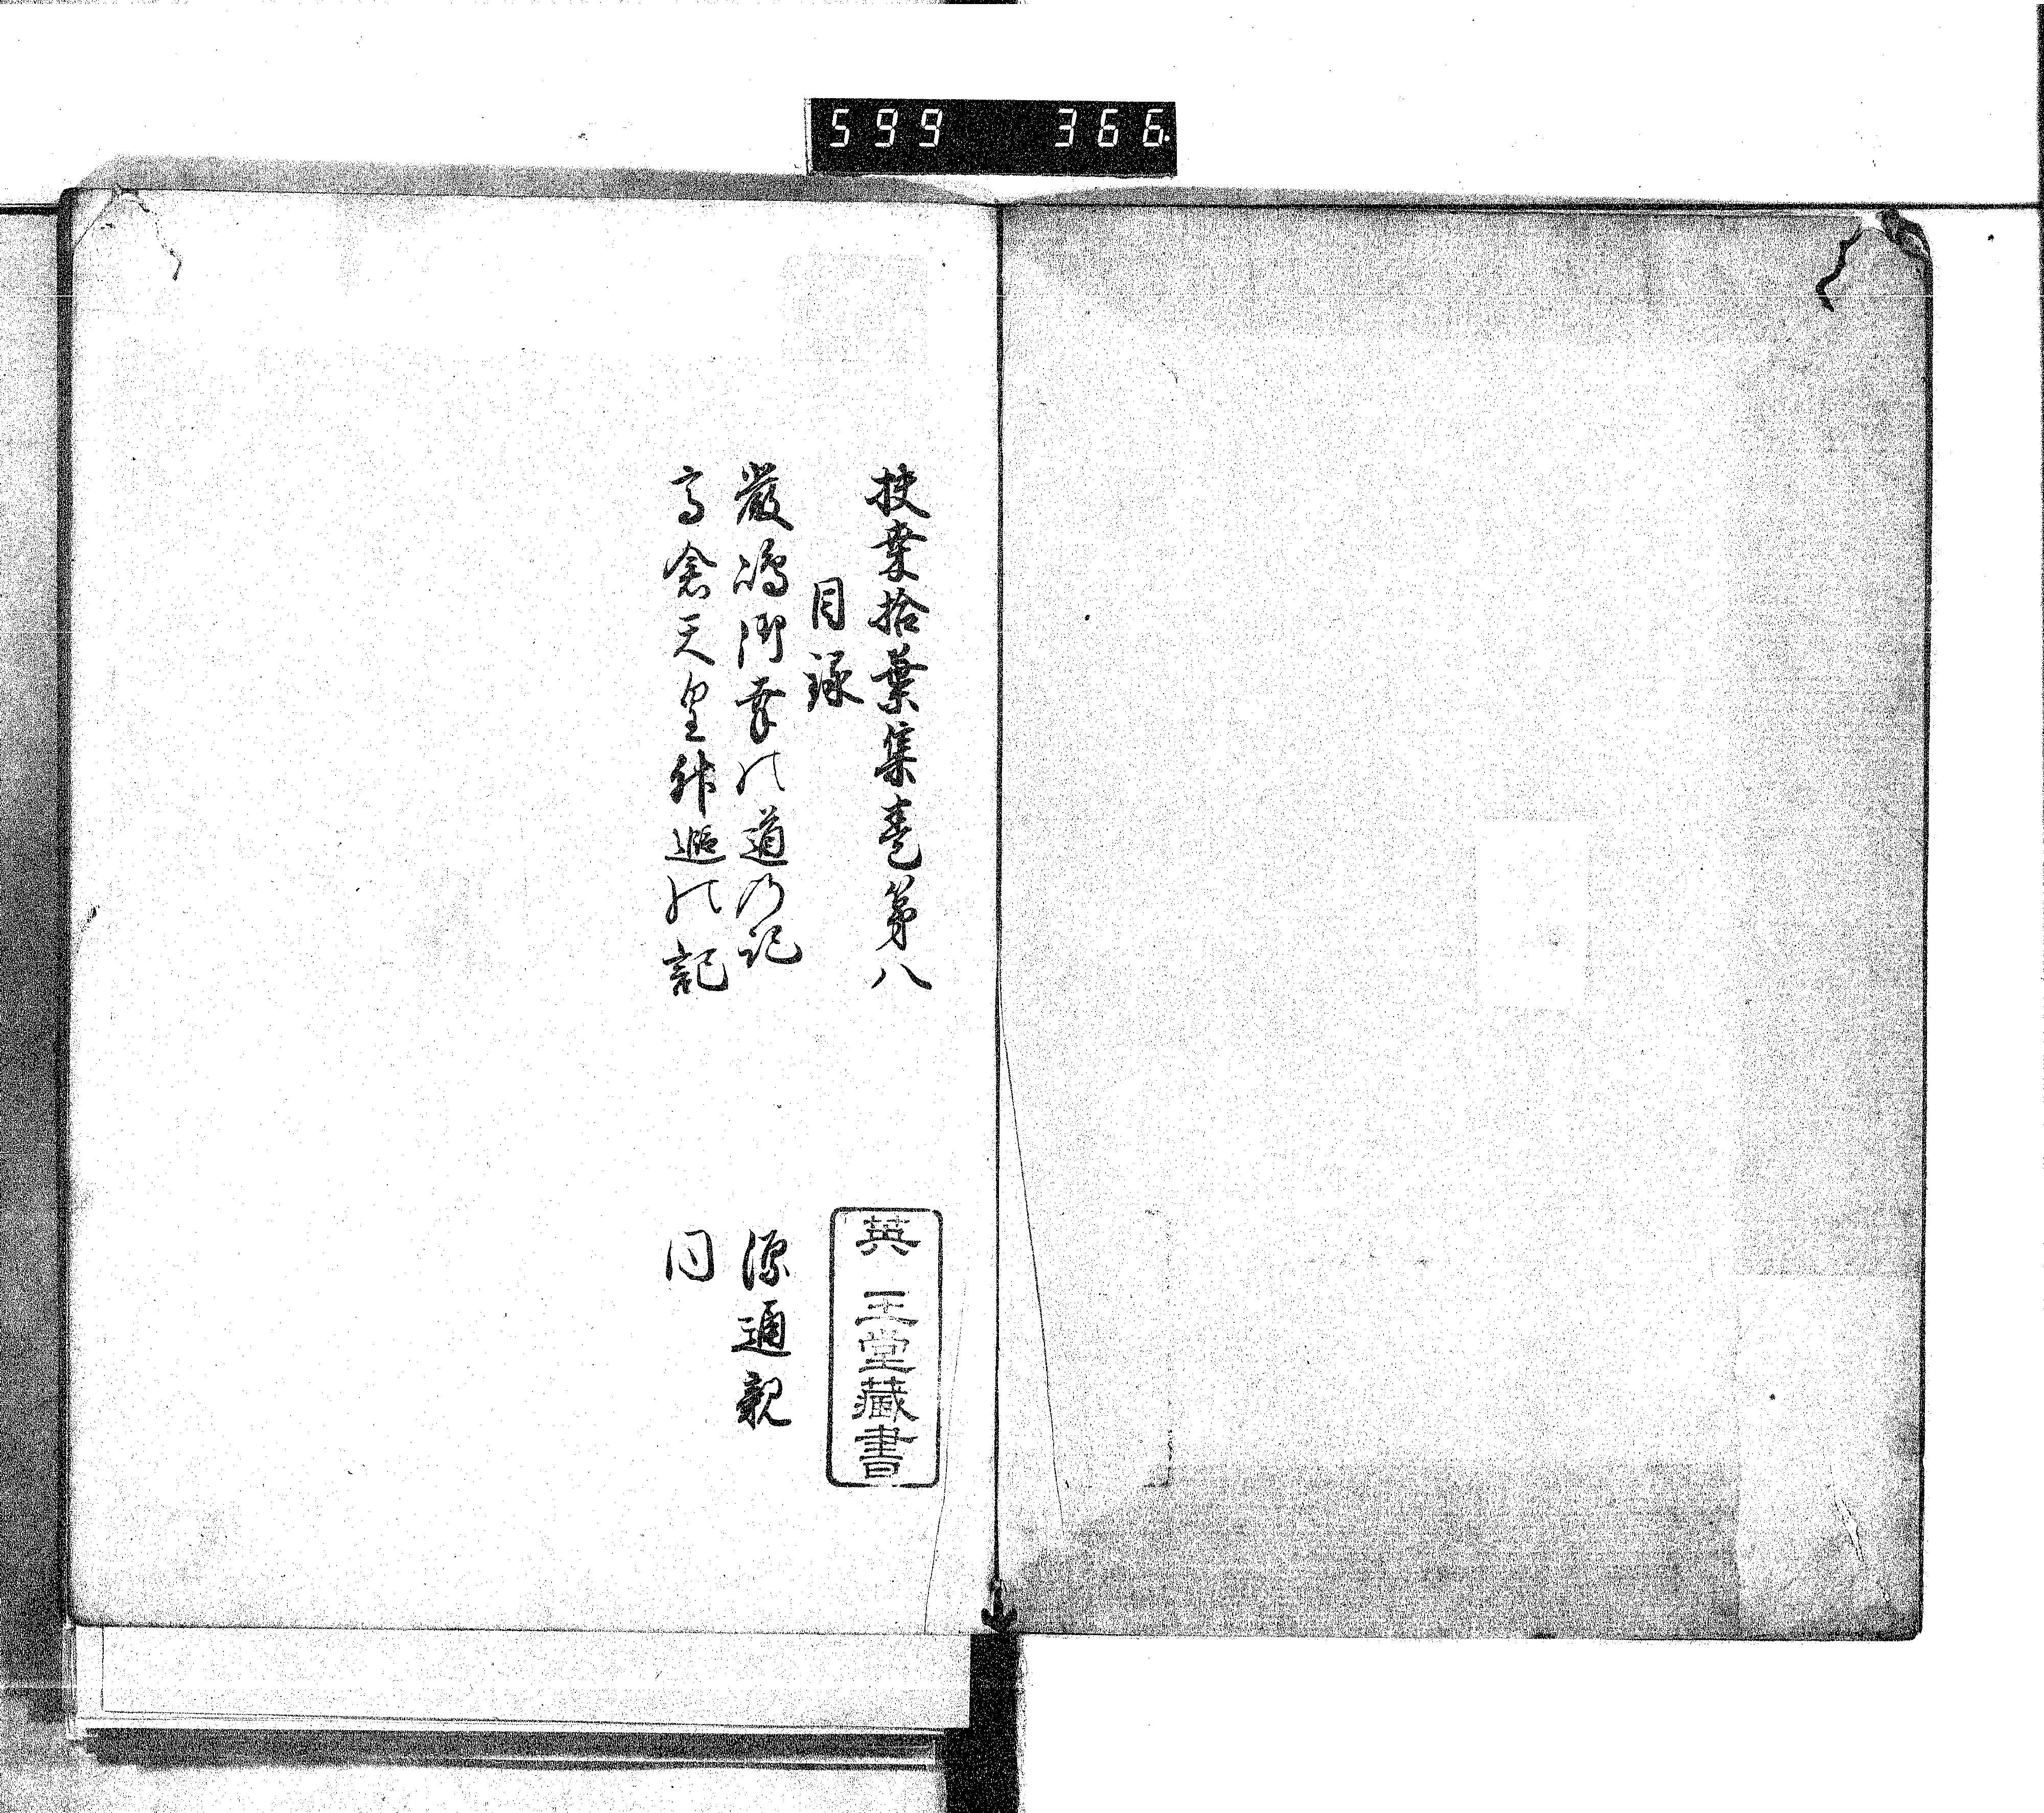 599 366
扶桒拾葉集巻第八
目録
嚴嶋御幸の道乃記 源通親
高倉天皇升遐の記 同
英 王堂藏書